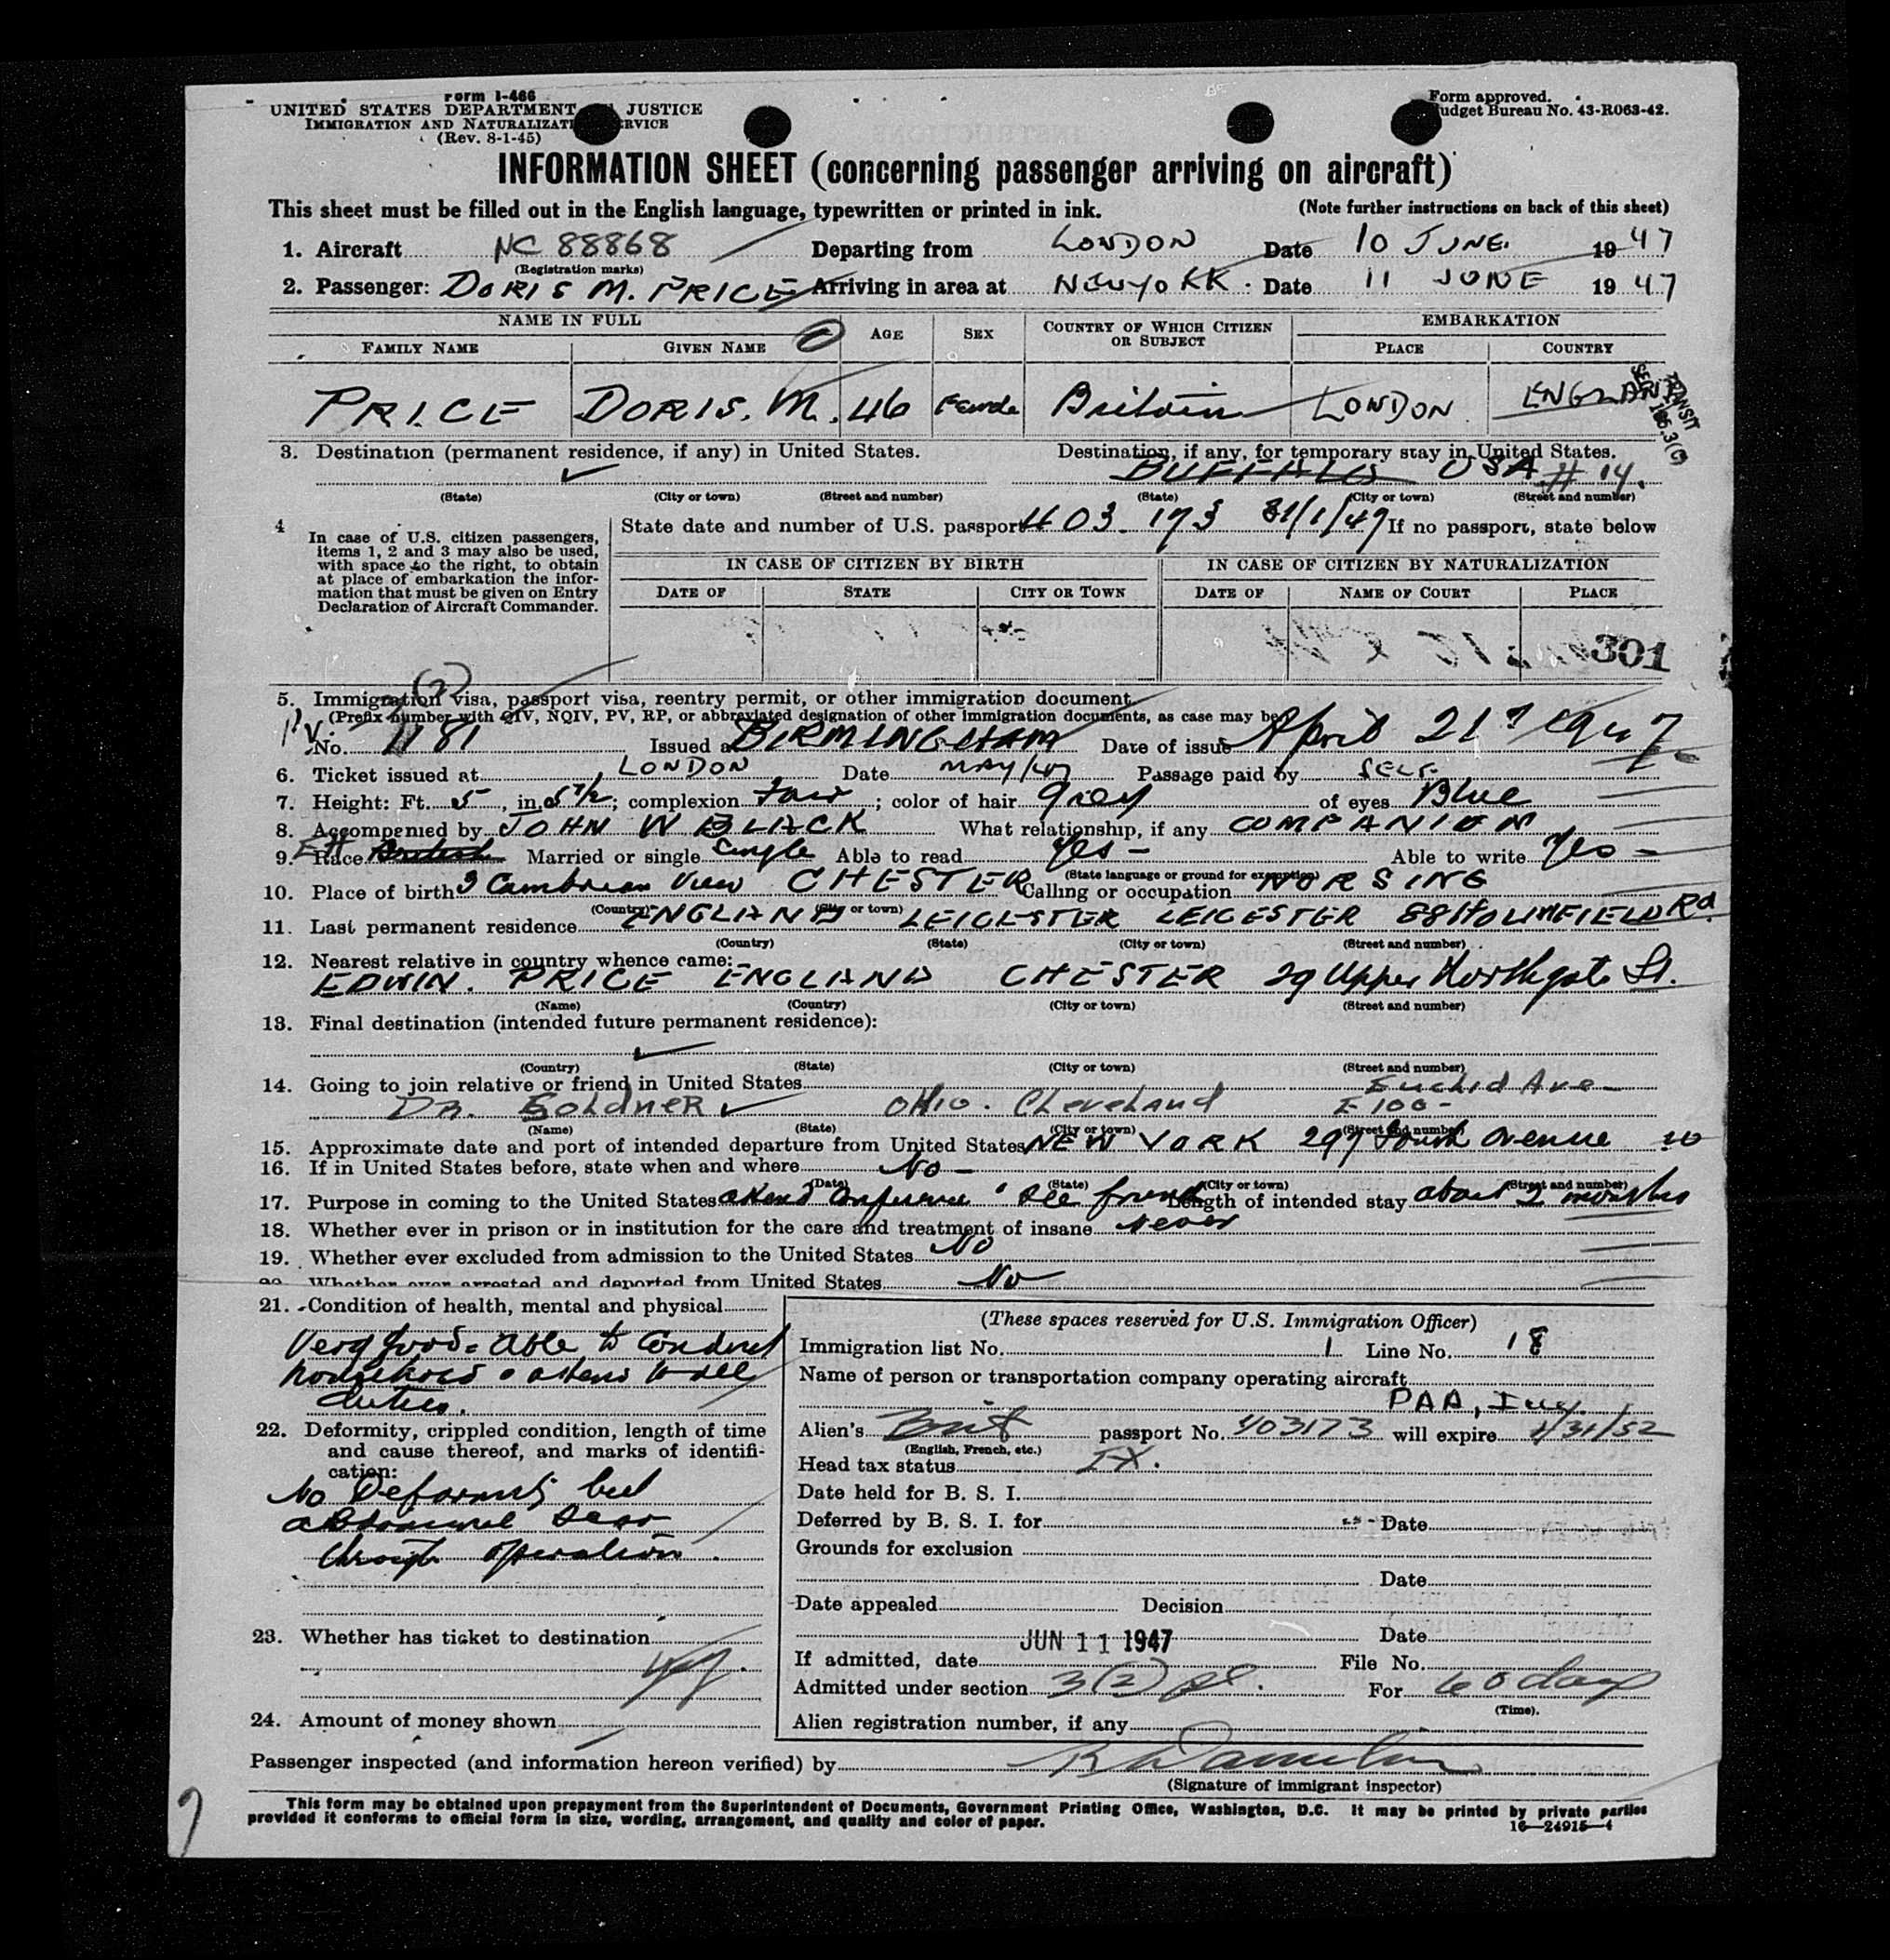 Form I-466
UNITED STATES DEPARTMENT JUSTICE
IMMIGRATION AND NATURALIZATI ERVICE
(Rev. 8-1-45)
Form approved.
udget Bureau No. 43-R063-42.
INFORMATION SHEET (concerning passenger arriving on aircraft)
This sheet must be filled out in the English language, typewritten or printed in ink. (Note further instructions on back of this sheet)
1. Aircraft NC 88868 Departing from LONDON Date 10 JUNE. 1947
(Registration marks)
2. Passenger: DORIS M. PRICE Arriving in area at NEWYORK. Date 11 JUNE 1947
NAME IN FULL AGE SEX COUNTRY OF WHICH CITIZEN OR SUBJECT EMBARKATION
FAMILY NAME GIVEN NAME PLACE COUNTRY
PRICE DORIS. M. 46 Female Britain LONDON ENGLAND
TRANSIT
3. Destination (permanent residence, if any) in United States. Destination, if any, for temporary stay in United States.
✓ BUFFALO USA # 14.
(State) (City or town) (Street and number) (State) (City or town) (Street and number)
4 In case of U.S. citizen passengers, items 1, 2 and 3 may also be used, with space to the right, to obtain at place of embarkation the information that must be given on Entry Declaration of Aircraft Commander.
State date and number of U.S. passport 403 173 31/1/47 If no passport, state below
IN CASE OF CITIZEN BY BIRTH IN CASE OF CITIZEN BY NATURALIZATION
DATE OF STATE CITY OR TOWN DATE OF NAME OF COURT PLACE
301
5. Immigration visa, passport visa, reentry permit, or other immigration document
(Prefix number with QIV, NQIV, PV, RP, or abbreviated designation of other immigration documents, as case may be)
PV. No. 1181 Issued at BIRMINGHAM Date of issue April 21st 1947
6. Ticket issued at LONDON Date MAY/47 Passage paid by SELF.
7. Height: Ft. 5, in. 5½; complexion Fair; color of hair Grey of eyes Blue
8. Accompanied by JOHN W BLACK What relationship, if any COMPANION
9. Race British Married or single Single Able to read Yes - Able to write Yes -
(State language or ground for exemption)
10. Place of birth 9 Cambrian View CHESTER Calling or occupation NURSING
(Country) (City or town)
11. Last permanent residence ENGLAND LEICESTER LEICESTER 88 HOLMFIELD Rd
(Country) (State) (City or town) (Street and number)
12. Nearest relative in country whence came:
EDWIN. PRICE ENGLAND CHESTER 29 Upper Northgate St.
(Name) (Country) (City or town) (Street and number)
13. Final destination (intended future permanent residence):
✓
(Country) (State) (City or town) (Street and number)
14. Going to join relative or friend in United States Euclid Ave
DR. GOLDNER ✓ OHIO. Cleveland E 100-
(Name) (State) (City or town) (Street and number)
15. Approximate date and port of intended departure from United States NEW YORK 297 Fourth Avenue 10
16. If in United States before, state when and where No -
(Date) (State) (City or town) (Street and number)
17. Purpose in coming to the United States attend Conference & see friends Length of intended stay about 2 months
18. Whether ever in prison or in institution for the care and treatment of insane Never
19. Whether ever excluded from admission to the United States No
20. Whether ever arrested and deported from United States No
21. Condition of health, mental and physical
Very good = able to Conduct
household & attend to all
duties.
22. Deformity, crippled condition, length of time and cause thereof, and marks of identification:
No Deformity but
abdominal scar
through operation.
23. Whether has ticket to destination
yes.
24. Amount of money shown
(These spaces reserved for U.S. Immigration Officer)
Immigration list No. 1 Line No. 18
Name of person or transportation company operating aircraft
PAA, Inc.
Alien's Brit passport No. 403173 will expire 1/31/52
(English, French, etc.)
Head tax status EX.
Date held for B. S. I.
Deferred by B. S. I. for Date
Grounds for exclusion
Date
Date appealed Decision
Date
If admitted, date JUN 11 1947 File No.
Admitted under section 3(2) For 60 days
(Time).
Alien registration number, if any
Passenger inspected (and information hereon verified) by
(Signature of immigrant inspector)
This form may be obtained upon prepayment from the Superintendent of Documents, Government Printing Office, Washington, D.C. It may be printed by private parties
provided it conforms to official form in size, wording, arrangement, and quality and color of paper. 16—24915-4